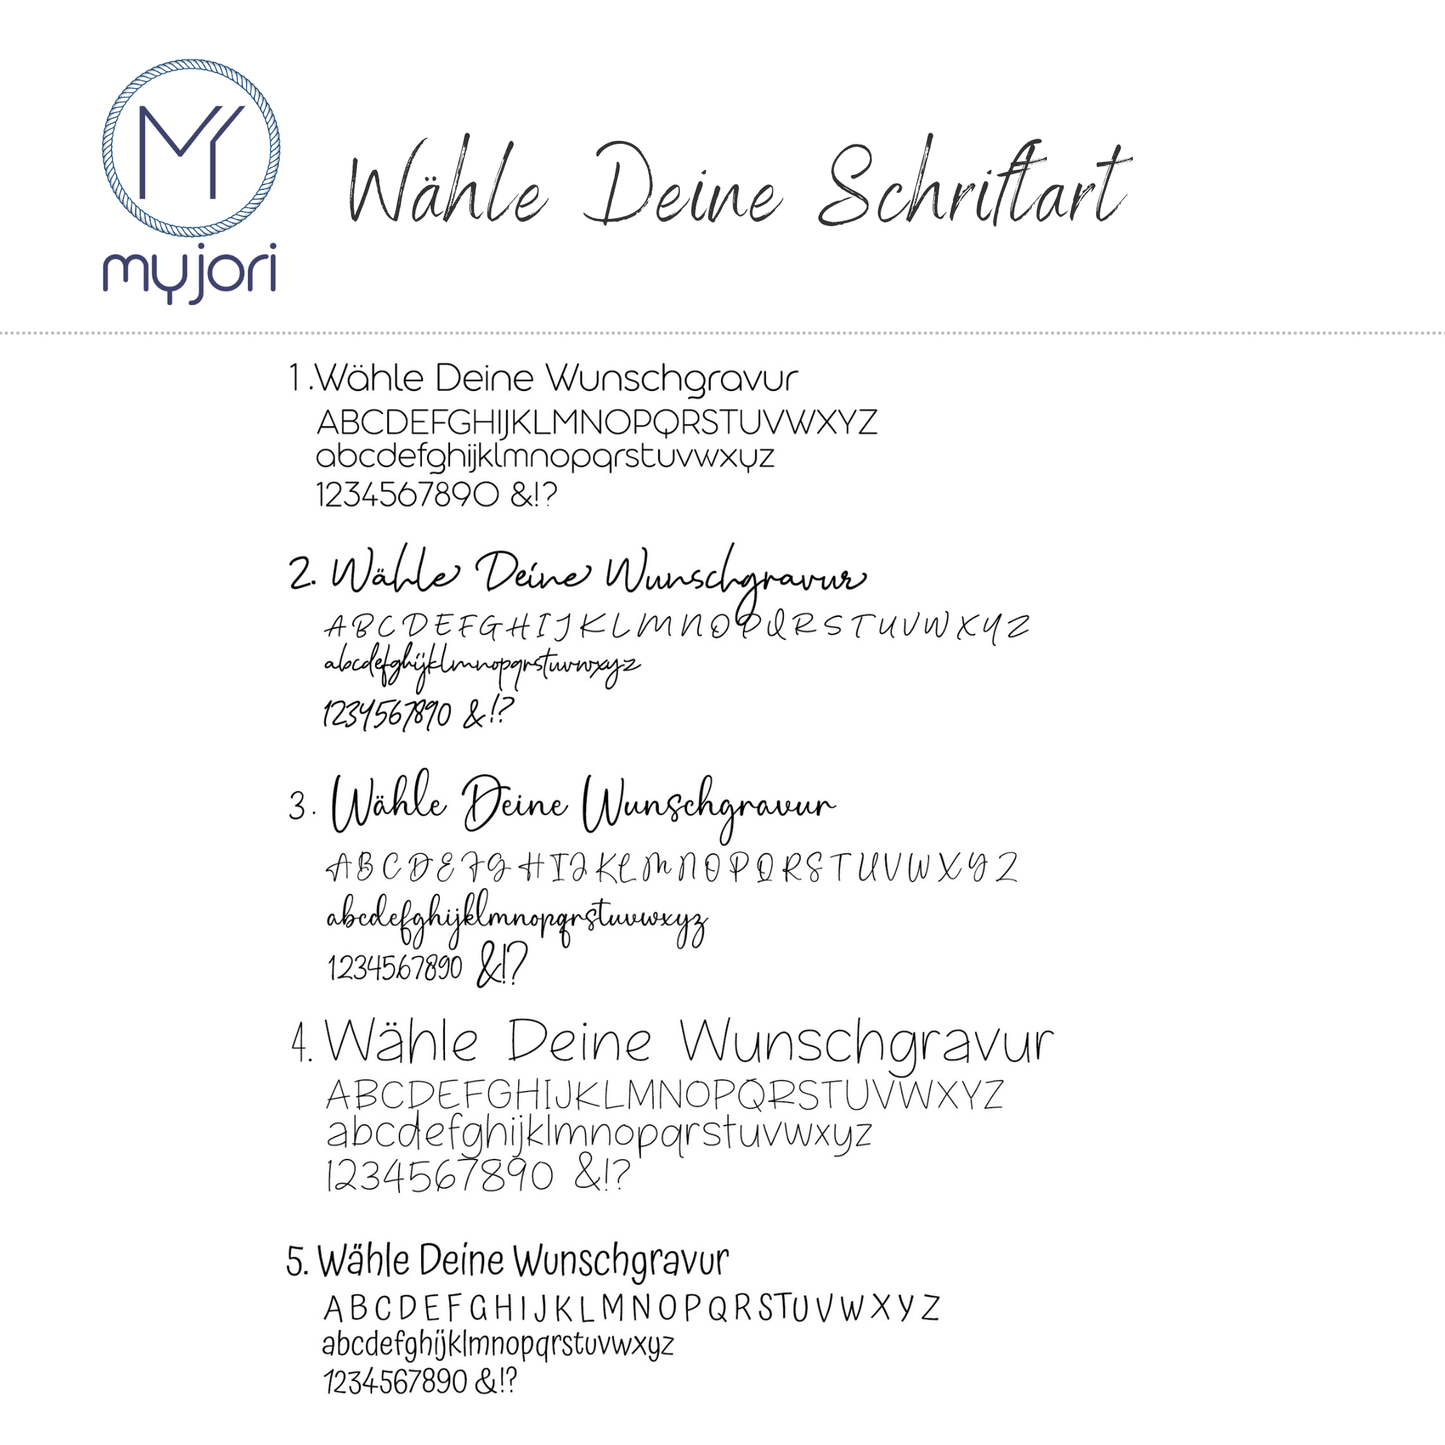 MY
myjori
Wähle Deine Schriftart
1.Wähle Deine Wunschgravur
ABCDEFGHIJKLMNOPQRSTUVWXYZ
abcdefghijklmnopqrstuvwxyz
1234567890 &!?
2. Wähle Deine Wunschgravur
ABCDEFGHIJKLMNOPQRSTUVWXYZ
abcdefghijklmnopqrstuvwxyz
1234567890 &!?
3. Wähle Deine Wunschgravur
ABCDEFGHIJKLMNOPQRSTUVWXYZ
abcdefghijklmnopqrstuvwxyz
1234567890 &!?
4. Wähle Deine Wunschgravur
ABCDEFGHIJKLMNOPQRSTUVWXYZ
abcdefghijklmnopqrstuvwxyz
1234567890 &!?
5. Wähle Deine Wunschgravur
ABCDEFGHIJKLMNOPQRSTUVWXYZ
abcdefghijklmnopqrstuvwxyz
1234567890 &!?